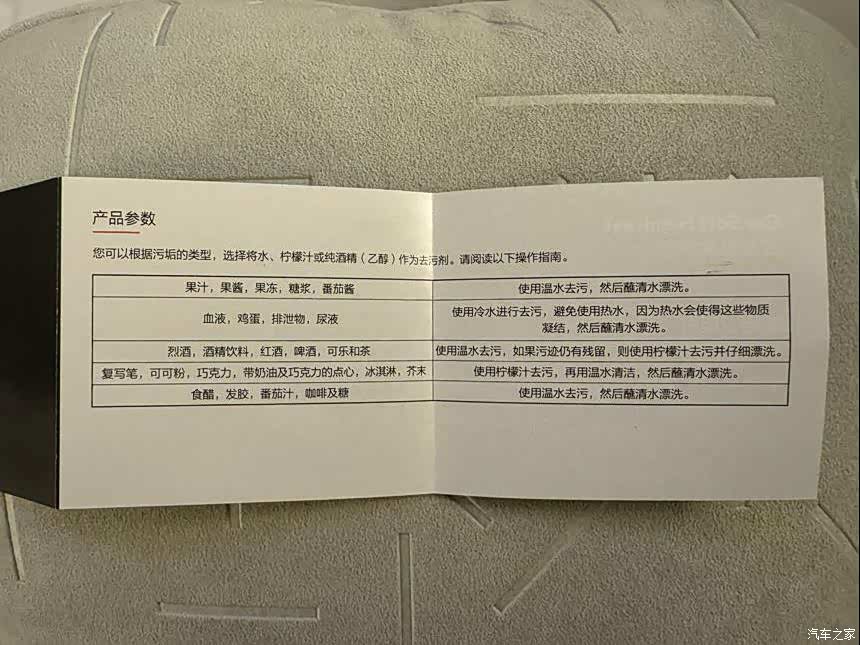 产品参数
您可以根据污垢的类型，选择将水、柠檬汁或纯酒精（乙醇）作为去污剂。请阅读以下操作指南。
果汁，果酱，果冻，糖浆，番茄酱 使用温水去污，然后蘸清水漂洗。
血液，鸡蛋，排泄物，尿液 使用冷水进行去污，避免使用热水，因为热水会使得这些物质
凝结，然后蘸清水漂洗。
烈酒，酒精饮料，红酒，啤酒，可乐和茶 使用温水去污，如果污迹仍有残留，则使用柠檬汁去污并仔细漂洗。
复写笔，可可粉，巧克力，带奶油及巧克力的点心，冰淇淋，芥末 使用柠檬汁去污，再用温水清洁，然后蘸清水漂洗。
食醋，发胶，番茄汁，咖啡及糖 使用温水去污，然后蘸清水漂洗。
汽车之家